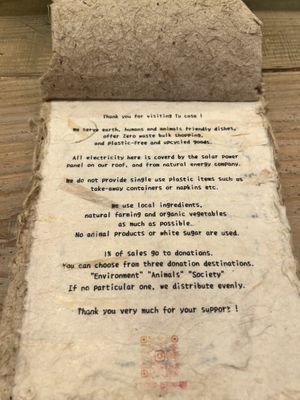 Thank you for visiting Tu casa !
We serve earth, humans and animals friendly dishes,
offer Zero waste bulk shopping,
and plastic-free and upcycled goods.
All electricity here is coverd by the solar power
panel on our roof, and from natural energy company.
We do not provide single use plastic items such as
take-away containers or napkins etc.
We use local ingredients,
natural farming and organic vegetables
as much as possible.
No animal products or white sugar are used.
1% of sales go to donations.
You can choose from three donation destinations.
"Environment" "Animals" "Society"
If no particular one, we distribute evenly.
Thank you very much for your support !